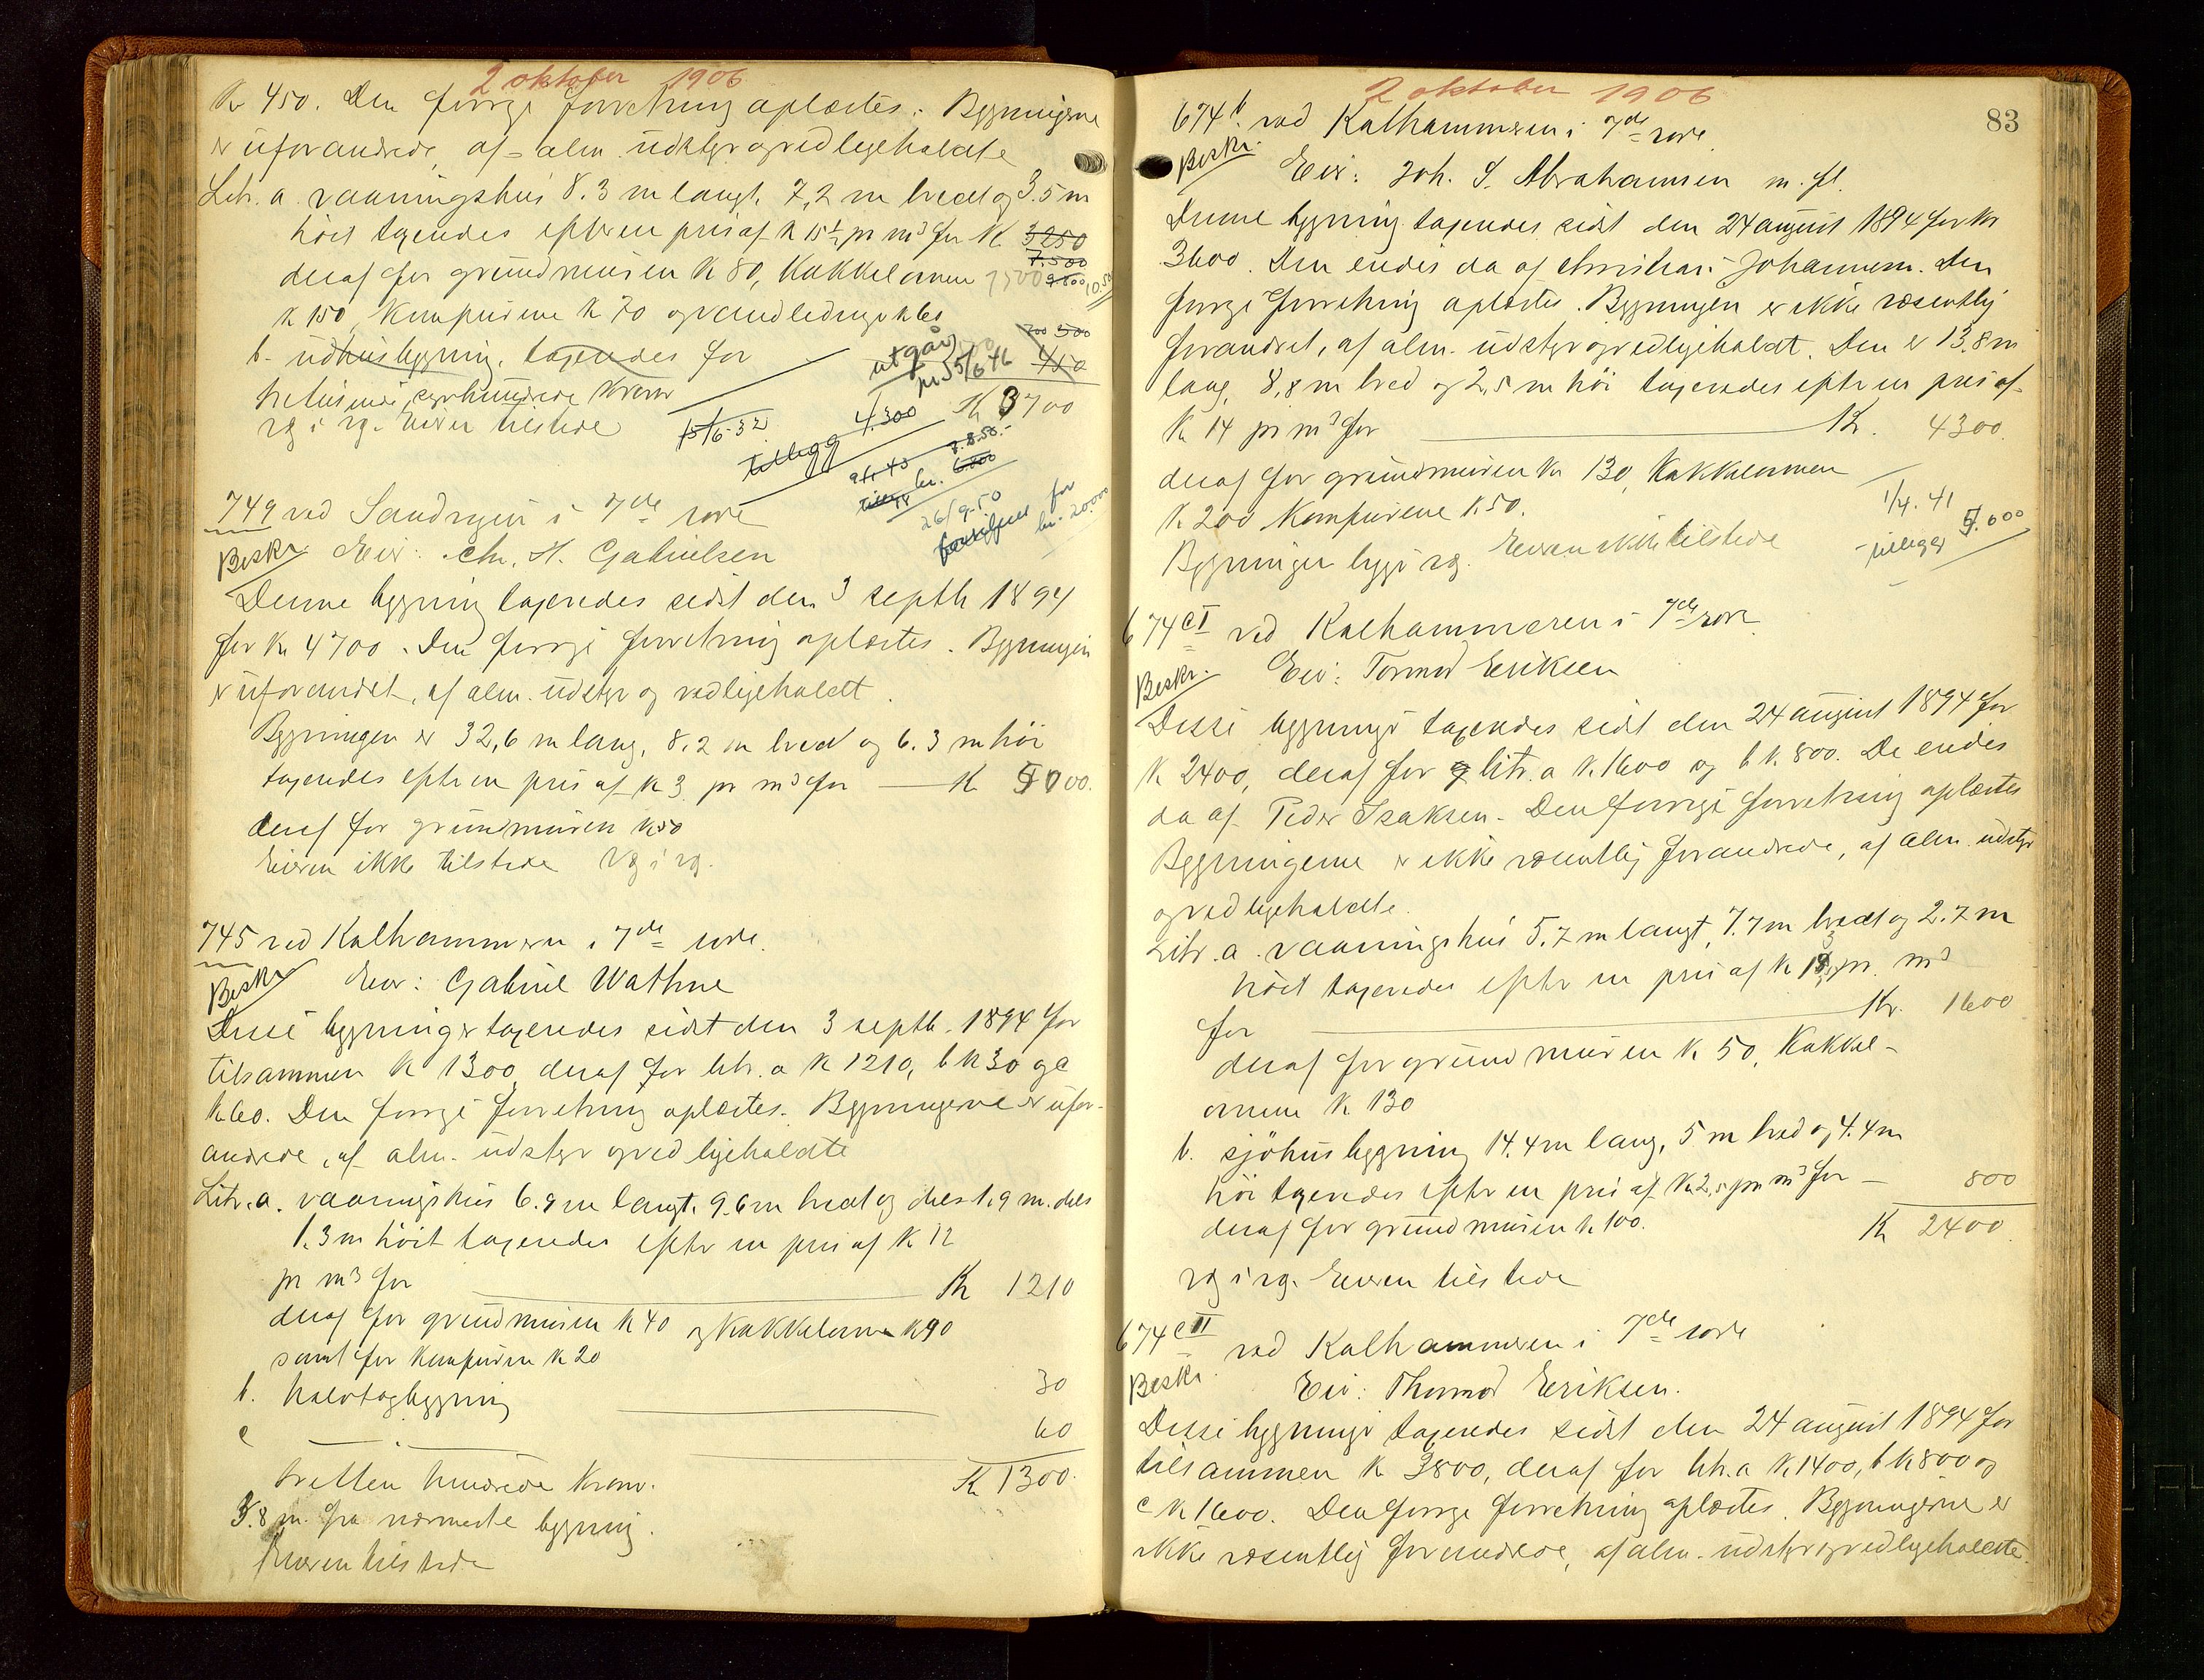 2 oktober 1906
K 450. Den forrige forretning oplæstes. Bygningerne
er uforandrede, af alm. udstyr og vedligeholdte
Litr. a. vaaningshus 8.3 m langt, 7,2 m bredt og 3.5 m
höit taxeredes efter en pris af K 15 1/2 pr m3 for K 3250
7.500
deraf for grundmuren K 80, Kakkelovnene 7500 9800
K 150, Kumpurene K 70 og vandledninger K 60
b. udhusbygning, taxeredes for 700 500
utgår 450
pr 5/6 46
tretusinde, syvhundrede Kroner K 3700
rg i rg. Eieren tilstede
15/6-32 tillegg 4.300
9/4 43 8.8.50.-
tillegg kr. 6.800
26/9-50
for
kr. 20.000
749 ved Sandvigen i 7de rode
Beskr. Eier: Chr. H. Gabrielsen
Denne bygning taxeredes sidst den 3 septb 1894
for K 4700. Den forrige forretning oplæstes. Bygningen
er uforandret, af alm. udstyr og vedligeholdt.
Bygningen er 32,6 m lang, 8.2 m bred og 6.3 m höi
taxeredes efter en pris af K 3 pr m3 for — K 5000.
deraf for grundmuren K 50
Eieren ikke tilstede rg i rg.
745 ved Kalhammeren i 7de rode.
Beskr. Eier: Gabriel Wathne
Disse bygninger taxeredes sidst den 3 septb. 1894 for
tilsammen K 1300, deraf for litr. a K 1210, b K 30 og c
K 60. Den forrige forretning oplæstes. Bygningerne er ufor-
andrede, af alm. udstyr og vedligeholdte
Litr. a. vaaningshus 6.9 m langt, 9.6 m bredt og dels 1,9 m. dels
1.3 m höit taxeredes efter en pris af K 12
pr m3 for K 1210
deraf for grundmuren K 40 og Kakkelovne K 90
samt for Kumpuren K 20
b. halvtagbygning 30
c — . — 60
tretten hundrede Kroner. K 1300.
3.8 m. fra nærmeste bygning.
Eieren tilstede
83
2 oktober 1906
674 b. ved Kalhammeren i 7de rode.
Beskr. Eier: Joh. S. Abrahamsen m. fl.
Denne bygning taxeredes sidst den 24 august 1894 for K
3600. Den eiedes da af Christian Johannesen. Den
forrige forretning oplæstes. Bygningen er ikke væsentlig
forandret, af alm. udstyr og vedligeholdt. Den er 13.8 m
lang, 8,8 m bred og 2,5 m höi taxeredes efter en pris af
K 14 pr m3 for — K. 4300.
deraf for grundmuren K 130, Kakkelovnen
K 200 Kumpurene K 50.
Bygningen bygt i rg. Eieren ikke tilstede
1/4. 41
tillegg 5.000
674 c I ved Kalhammeren i 7de rode
Beskr. Eier: Tormod Eriksen
Disse bygninger taxeredes sidst den 24 august 1894 for
K 2400, deraf for litr. a K 1600 og b K 800. De eiedes
da af Peder Isaksen. Den forrige forretning oplæstes
Bygningerne er ikke væsentlig forandrede, af alm. udstyr
og vedligeholdte.
Litr. a. vaaningshus 5.7 m langt, 7.7 m bredt og 2.7 m
höit taxeredes efter en pris af K 13,5 pr. m3
for — Kr. 1600
deraf for grundmuren K 50, Kakkel-
ovnene K 130
b. sjöhusbygning 14.4 m lang, 5 m bred og 4.4 m
höi taxeredes efter en pris af K 2,5 pr m3 for — 800
deraf for grundmuren K 100. K 2400.
rg i rg. Eieren tilstede
674 c II ved Kalhammeren i 7de rode
Beskr. Eier: Thormod Eriksen.
Disse bygninger taxeredes sidst den 24 august 1894 for
tilsammen K 3800, deraf for litr. a K 1400, b K 800 og
c K 1600. Den forrige forretning oplæstes. Bygningerne er
ikke væsentlig forandrede, af alm. udstyr og vedligeholdte.